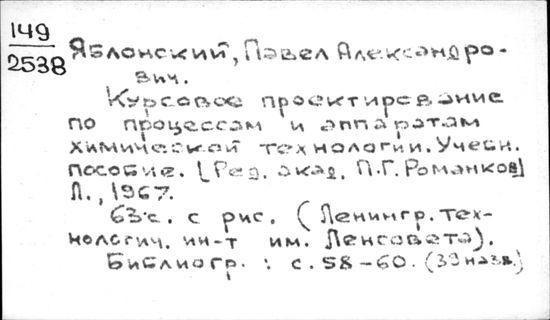 149
2538
Яблонский, Павел Александро-
вич.
Курсовое проектирование
по процессам и аппаратам
химической технологии. Учебн.
пособие. [Ред. акад. П.Г. Романков]
Л., 1967.
63 с. с рис. (Ленингр. тех-
нологич. ин-т им. Ленсовета).
Библиогр. : с. 58-60. (39 назв.)